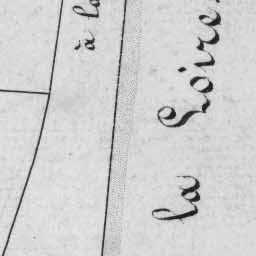 à la
la Loire.